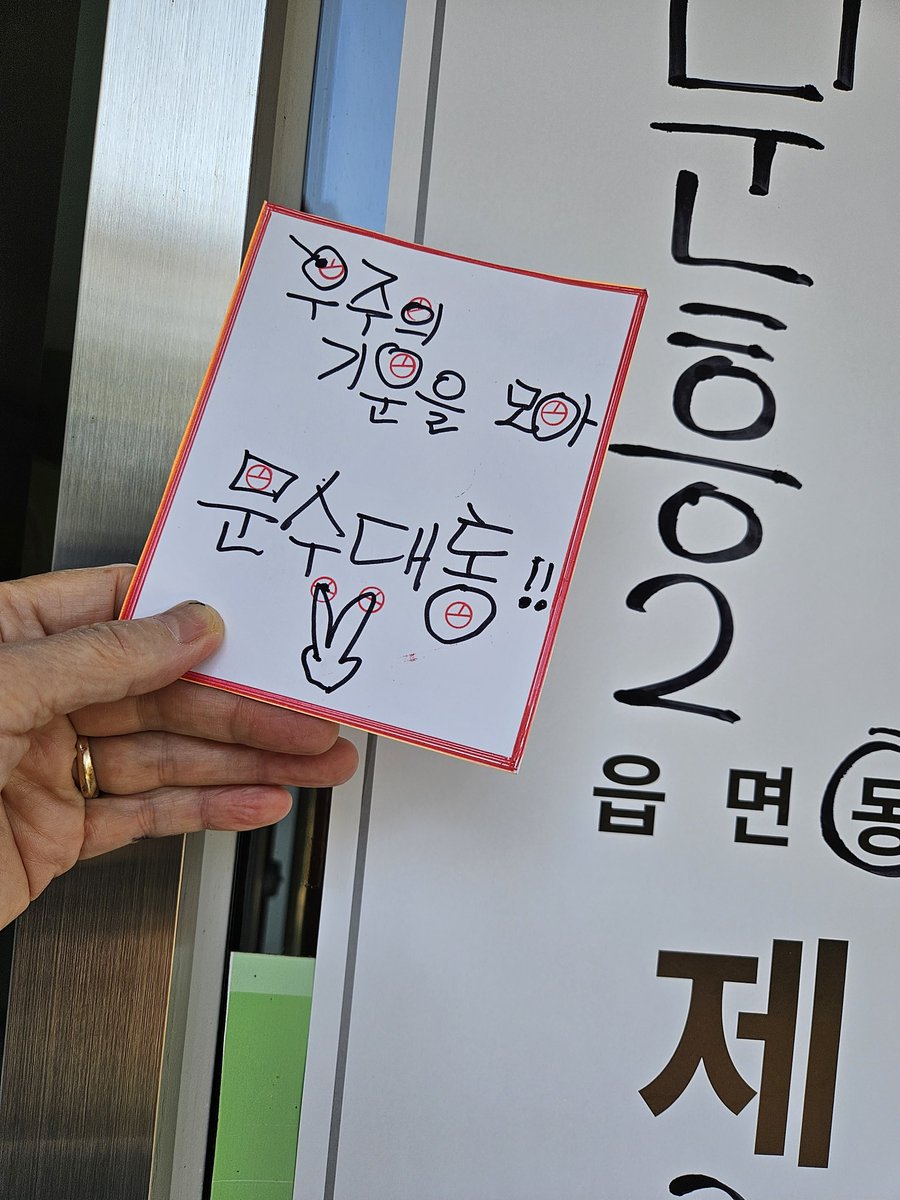 우주의
기운을 모아
문수대통!!
문흥2
읍 면 동
제